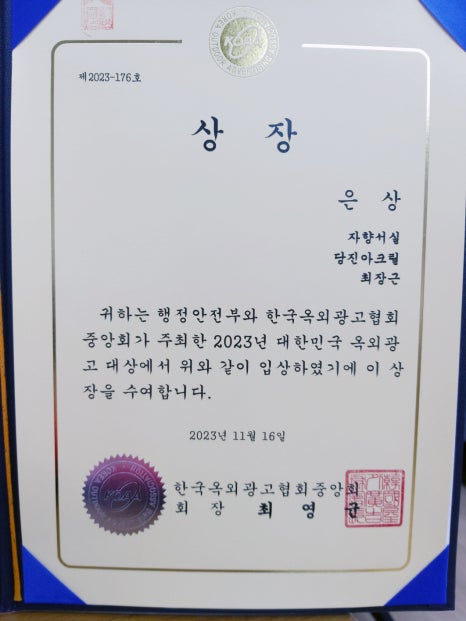 제2023-176호
상 장
은 상
자향서실
당진아크릴
최장근
귀하는 행정안전부와 한국옥외광고협회
중앙회가 주최한 2023년 대한민국 옥외광
고 대상에서 위와 같이 입상하였기에 이 상
장을 수여합니다.
2023년 11월 16일
한국옥외광고협회중앙회
회 장 최 영 균
KOAA